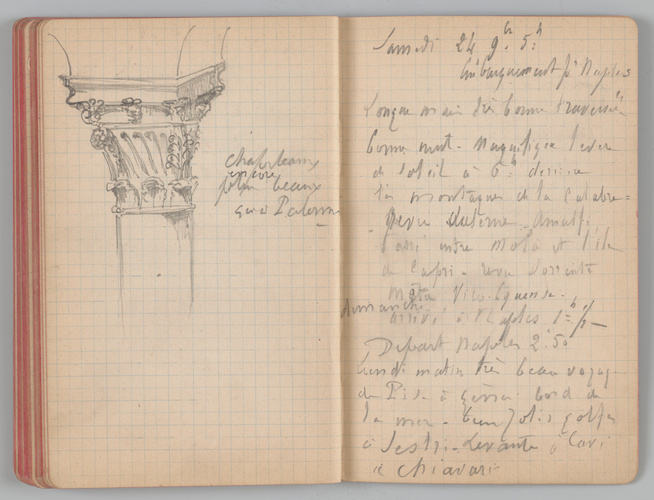 chapiteaux
encore
plus beaux
qu'à Palerme
Samedi 24 9bre 5h
Embarquement pr Naples
Longue mais très bonne traversée
bonne nuit - Magnifique lever
de soleil à 6h derrière
les montagnes de la Calabre =
Amalfi
Passé entre et l'île
de Capri - revu Sorrente
Meta Vico Equense -
dimanche
arrivé à Naples 1h 1/2
Départ Naples 2h 50
lundi matin très beau voyage
de Pise à Gênes bord de
la mer - jolis golfes
à Sestri-Levante à Cavi
à Chiavari